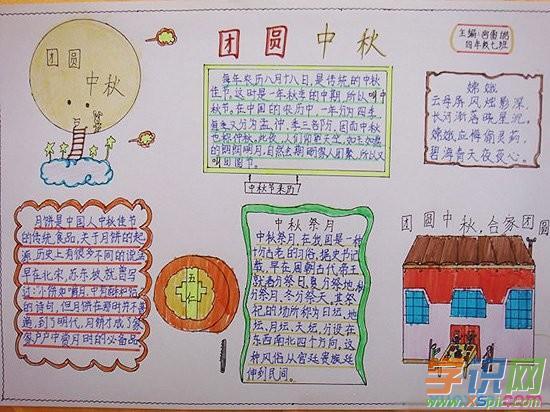 团圆
中秋
团圆中秋
主编:
四年级七班
每年农历八月十八日,是传统的中秋
佳节。这时是一年秋季的中期,所以叫中
秋节。在中国的农历中,一年分为四季,
每季又分为孟、仲、季三各部分,因而中秋
也称仲秋。此夜,人们仰望天空,如玉如盘
的朗朗明月,自然会期盼家人团聚,所以又
叫团圆节。
中秋节来历
嫦娥
云母屏风烛影深,
长河渐落晓星沉,
嫦娥应悔偷灵药,
碧海青天夜夜心。
月饼是中国人中秋佳节
的传统食品,关于月饼的起
源,历史上有很多不同的说法
早在北宋,苏东坡就曾写
过:小饼如嚼月,中有酥和饴
的诗句,但月饼在那时并不普
遍,到了明代,月饼才成了家
家户户中赏月时的必备品
五
仁
中秋祭月
中秋祭月,在我国是一种
十分古老的习俗。据史书记
载,早在周朝古代帝王
就有春分祭日、夏分祭地、秋
分祭月、冬分祭天,其祭
祀的场所称为日坛、地
坛、月坛、天坛,分设在
东西南北四个方向,这
种风俗从宫廷贵族延
伸到民间。
团圆中秋,合家团圆
学识网
www.xspic.com